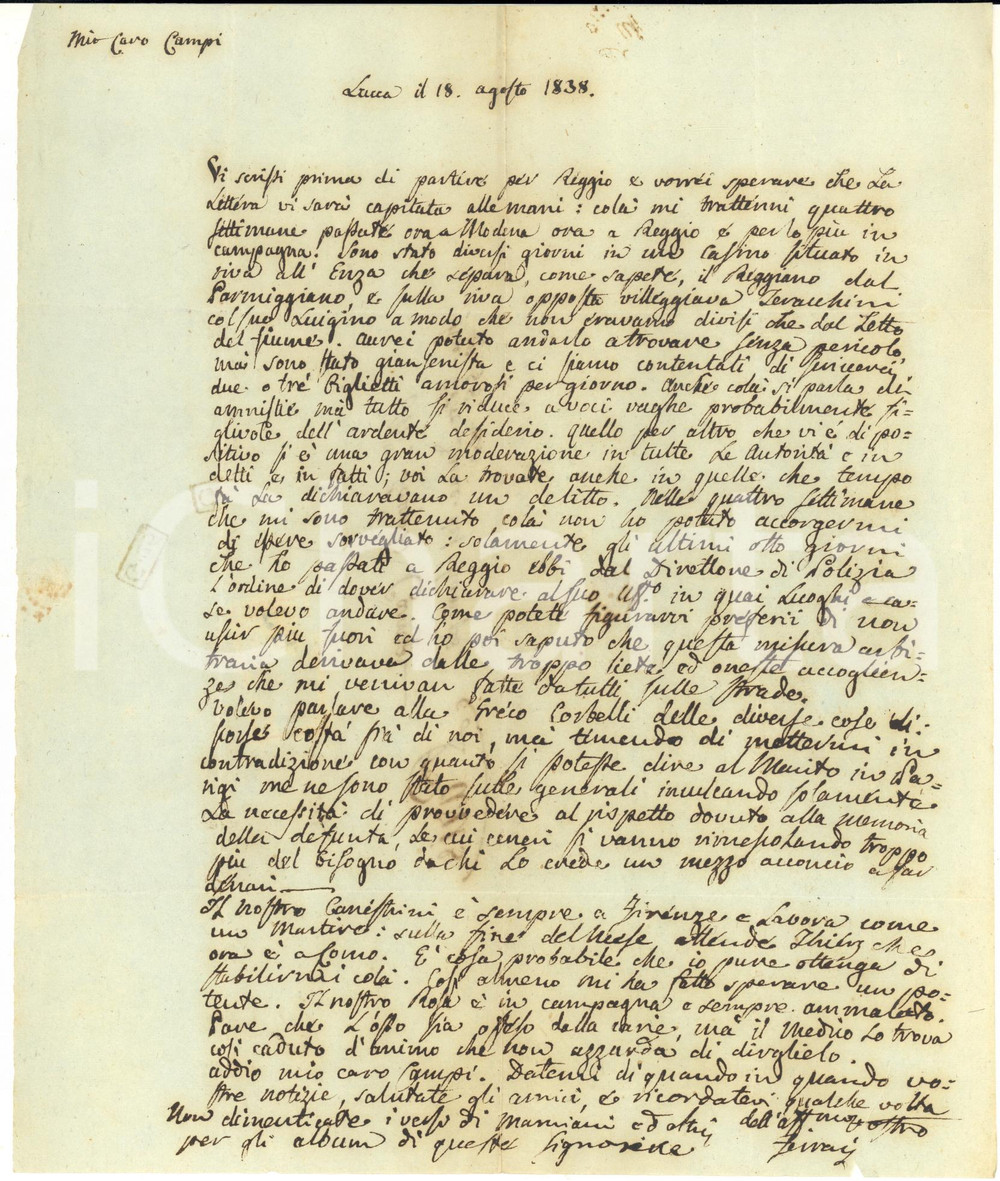 Mio Caro Campi
Lucca il 18. agosto 1838.
Vi scrissi prima di partire per Reggio e vorrei sperare che La
Lettera vi sarà capitata alle mani: colà mi trattenni quattro
settimane passate ora a Modena ora a Reggio e per lo più in
campagna. Sono stato diversi giorni in un Casino situato in
riva all' Enza che separa, come sapete, il Reggiano dal
Parmiggiano, e sulla riva opposta villeggiava
col suo Luigino a modo che non eravamo divisi che dal Letto
del fiume. avrei potuto andarlo a trovare senza pericolo,
mà sono stato giansenista e ci siamo contentati di scriverci
due o tré Biglietti amorosi per giorno. anche colà si parla di
amnistie mà tutto si riduce a voci vaghe probabilmente fi=
gliuole dell' ardente desiderio. quello per altro che vi é di po=
sitivo si é una gran moderazione in tutte Le Autorità e in
detti e in fatti; voi La trovate anche in quelle che tempo
fà La dichiaravano un delitto. Nelle quattro settimane
che mi sono trattenuto colà non ho potuto accorgermi
di essere sorvegliato: solamente gli ultimi otto giorni
che ho passati a Reggio ebbi dal Direttore di Polizia
L'ordine di dover dichiarare al suo Uff.o in quai Luoghi e ca=
se volevo andare. Come potete figurarvi preferii di non
usir più fuori ed ho poi saputo che questa misura arbi=
traria derivava dalle troppo liete ed oneste accoglien=
ze che mi venivan fatte da tutti sulle strade.
Volevo parlare alla Greco Corbelli delle diverse cose di=
scorse costà frà di noi, mà timendo di mettermi in
contradizione con quanto si potesse dire al Marito in Pa=
rigi me ne sono stato sulle generali inculcando solamente
La necessità di provvedere al rispetto dovuto alla memoria
della defunta, Le cui ceneri si vanno rimescolando troppo
più del bisogno da chi Lo crede un mezzo acconcio a far
denari.
Il nostro Canestrini é sempre a Firenze e Lavora come
un Martire: sulla fine del Mese attende Thiers che
ora è a Como. E' cosa probabile che io pure ottenga di
stabilirmi colà. Così almeno mi ha fatto sperare un po=
tente. Il nostro Rosa è in campagna e sempre ammalato.
Pare che L'osso sia offeso dalla carie, mà il Medico Lo trova
così caduto d'animo che non azzarda di dirglielo.
addio mio caro Campi. Datemi di quando in quando vo=
stre notizie, salutate gli amici, e ricordatevi qualche volta
dell'aff.mo vostro
Non dimenticate i versi di Mamiani ed altri
per gli album di queste Signorine